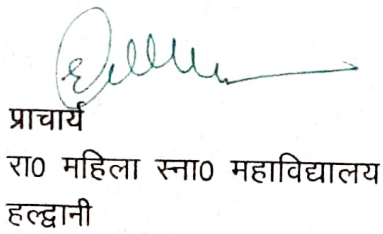 प्राचार्य
रा0 महिला स्ना0 महाविद्यालय
हल्द्वानी